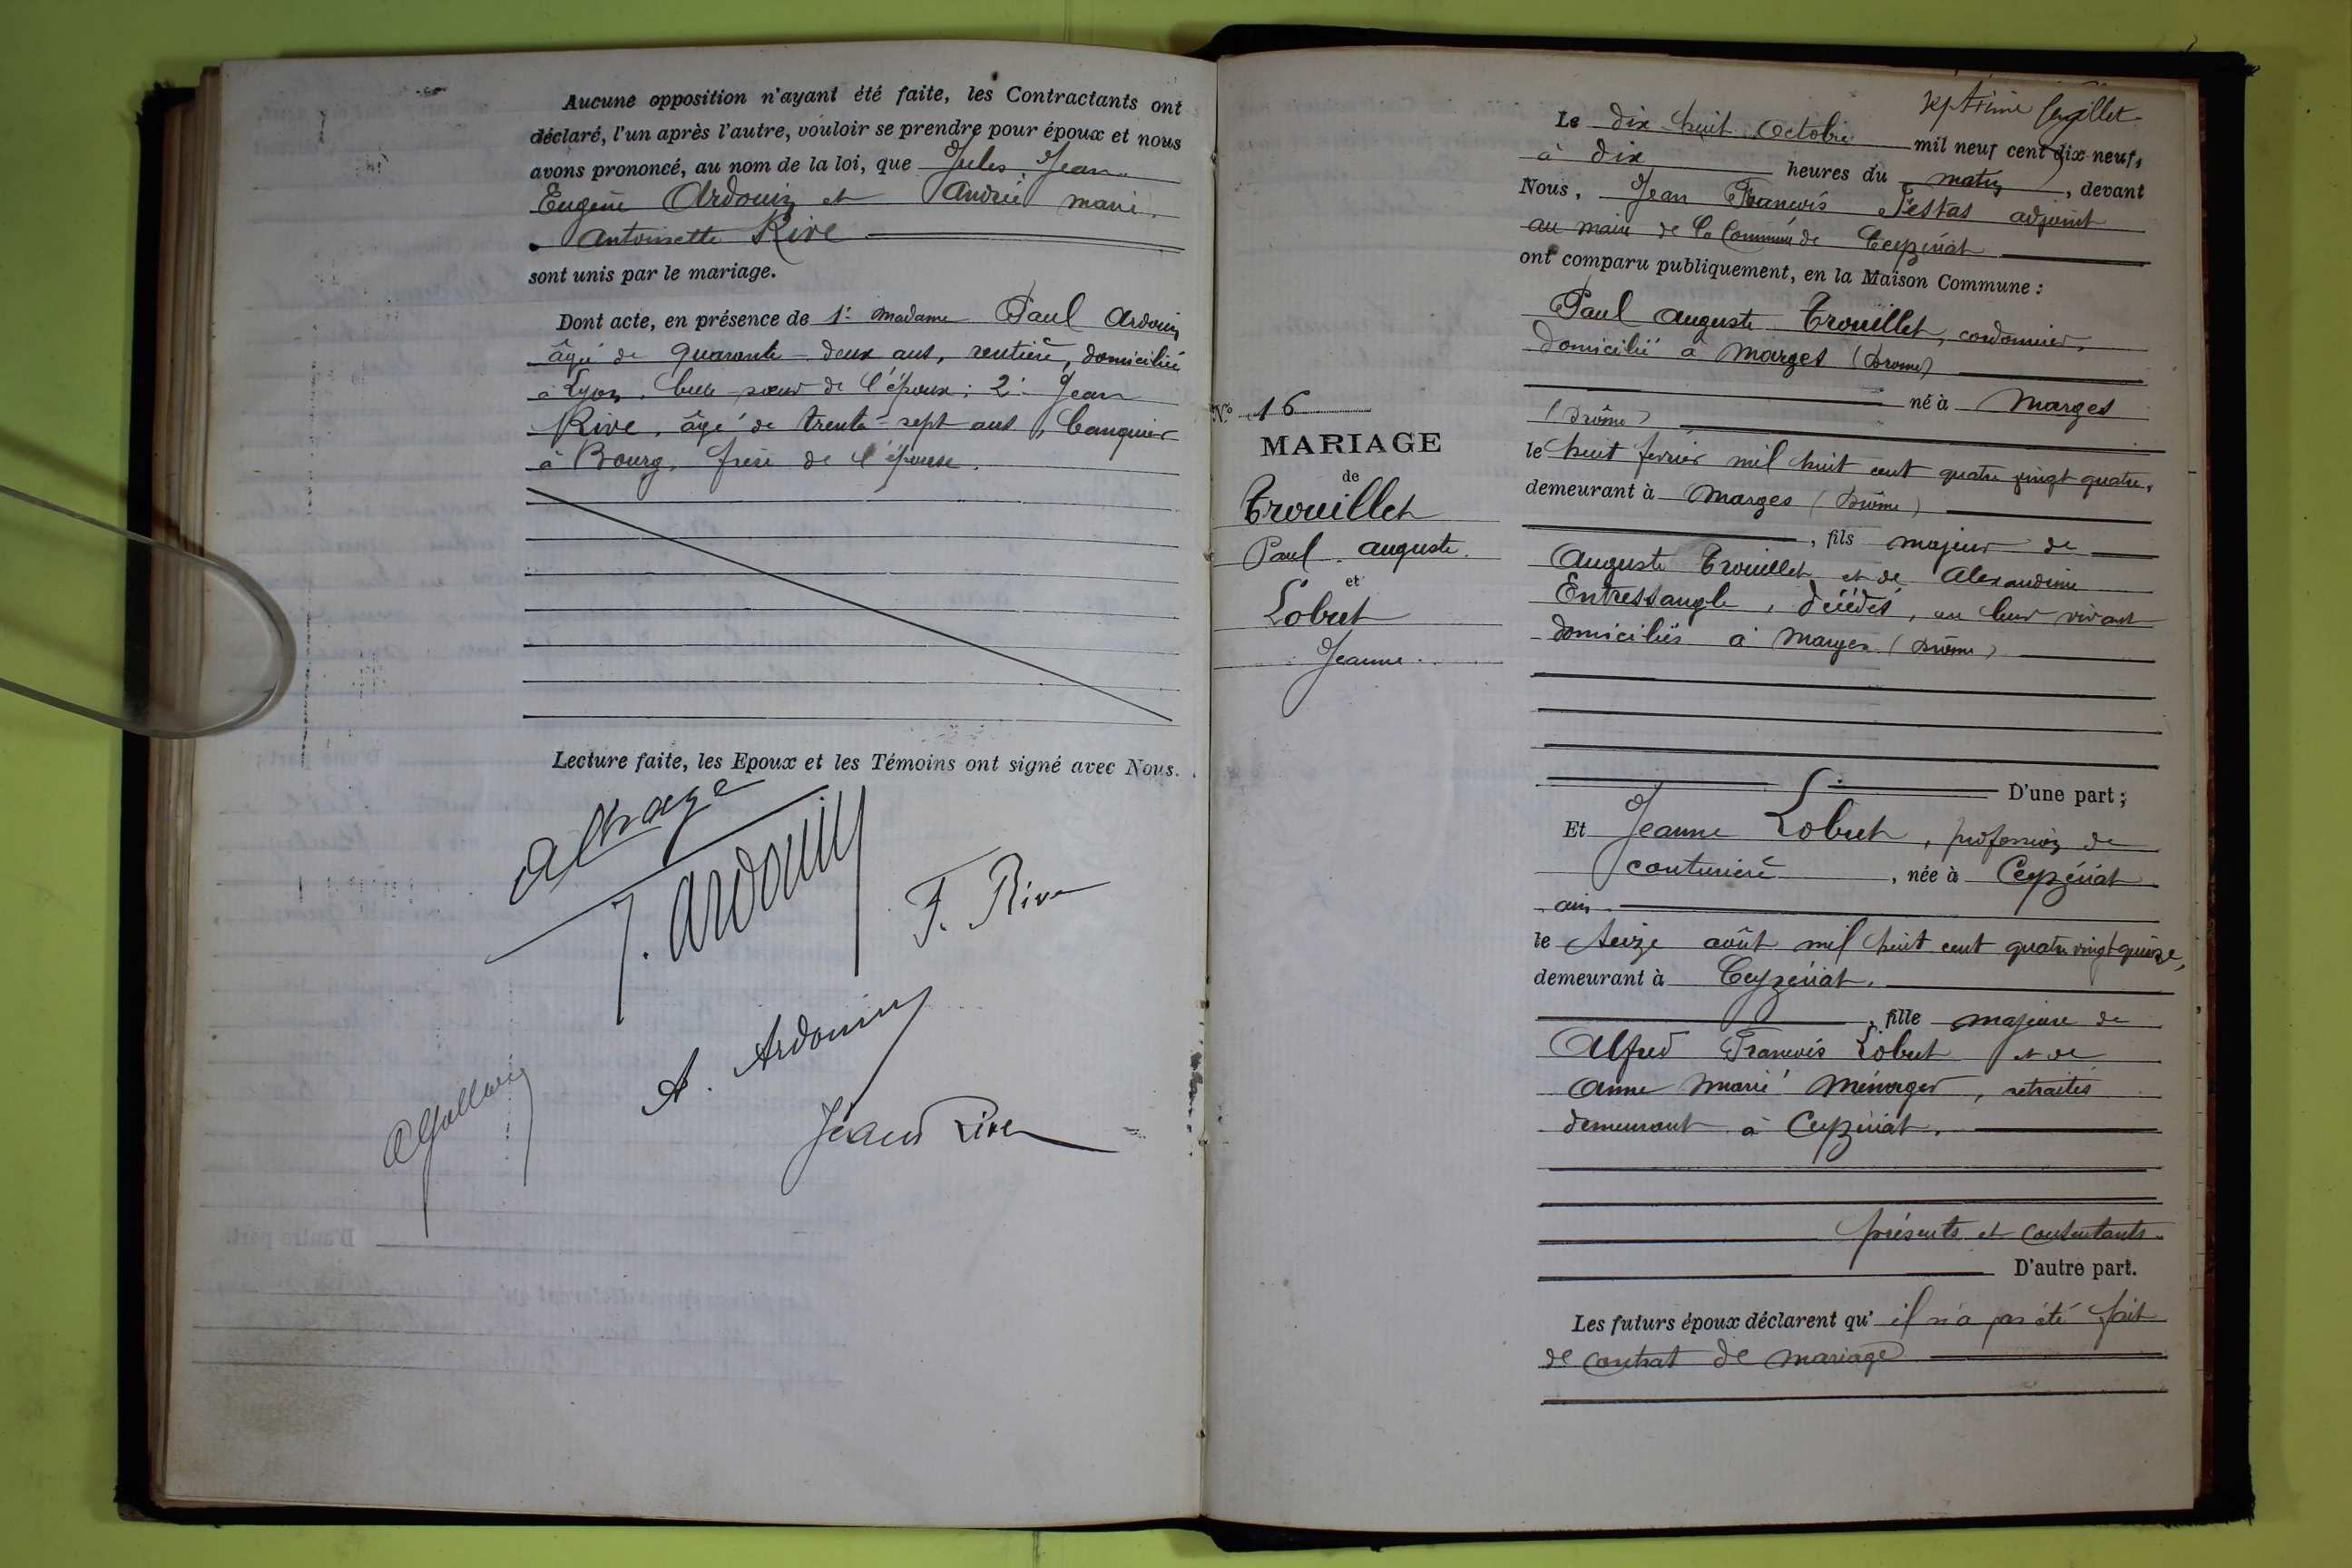 Aucune opposition n'ayant été faite, les Contractants ont
déclaré, l'un après l'autre, vouloir se prendre pour époux et nous
avons prononcé, au nom de la loi, que Jules Jean
Eugène Ardouin et Andrée Marie
Antoinette Rive
sont unis par le mariage.
Dont acte, en présence de 1: Madame Paul Ardouin
âgée de quarante-deux ans, rentière, domiciliée
à Lyon, belle soeur de l'époux; 2: Jean
Rive, âgé de trente-sept ans, banquier
à Bourg, frère de l'épouse.
Lecture faite, les Epoux et les Témoins ont signé avec Nous.
J. Ardouin
F. Rive
A. Ardouin
Jean Rive
septième feuillet
Le dix huit Octobre mil neuf cent dix-neuf,
à dix heures du matin, devant
Nous, Jean François Festas adjoint
au maire de la Commune de Ceyzériat
ont comparu publiquement, en la Maison Commune:
Paul Auguste Trouillet, cordonnier,
domicilié à Marges (Drôme)
né à Marges
(Drôme)
le huit février mil huit cent quatre vingt quatre,
demeurant à Marges (Drôme)
, fils majeur de
Auguste Trouillet et de Alexandrine
Entressangle, décédés, en leur vivant
domiciliés à Marges (Drôme)
D'une part;
N° 16
MARIAGE
de
Trouillet
Paul Auguste
et
Lobret
Jeanne
Et Jeanne Lobret, profession de
couturière, née à Ceyzériat
ain
le seize août mil huit cent quatre vingt quinze,
demeurant à Ceyzériat.
, fille majeure de
Alfred François Lobret et de
Anne Marie Ménager, retraités
demeurant à Ceyzériat.
présents et consentants.
D'autre part.
Les futurs époux déclarent qu'il n'a pas été fait
de contrat de mariage